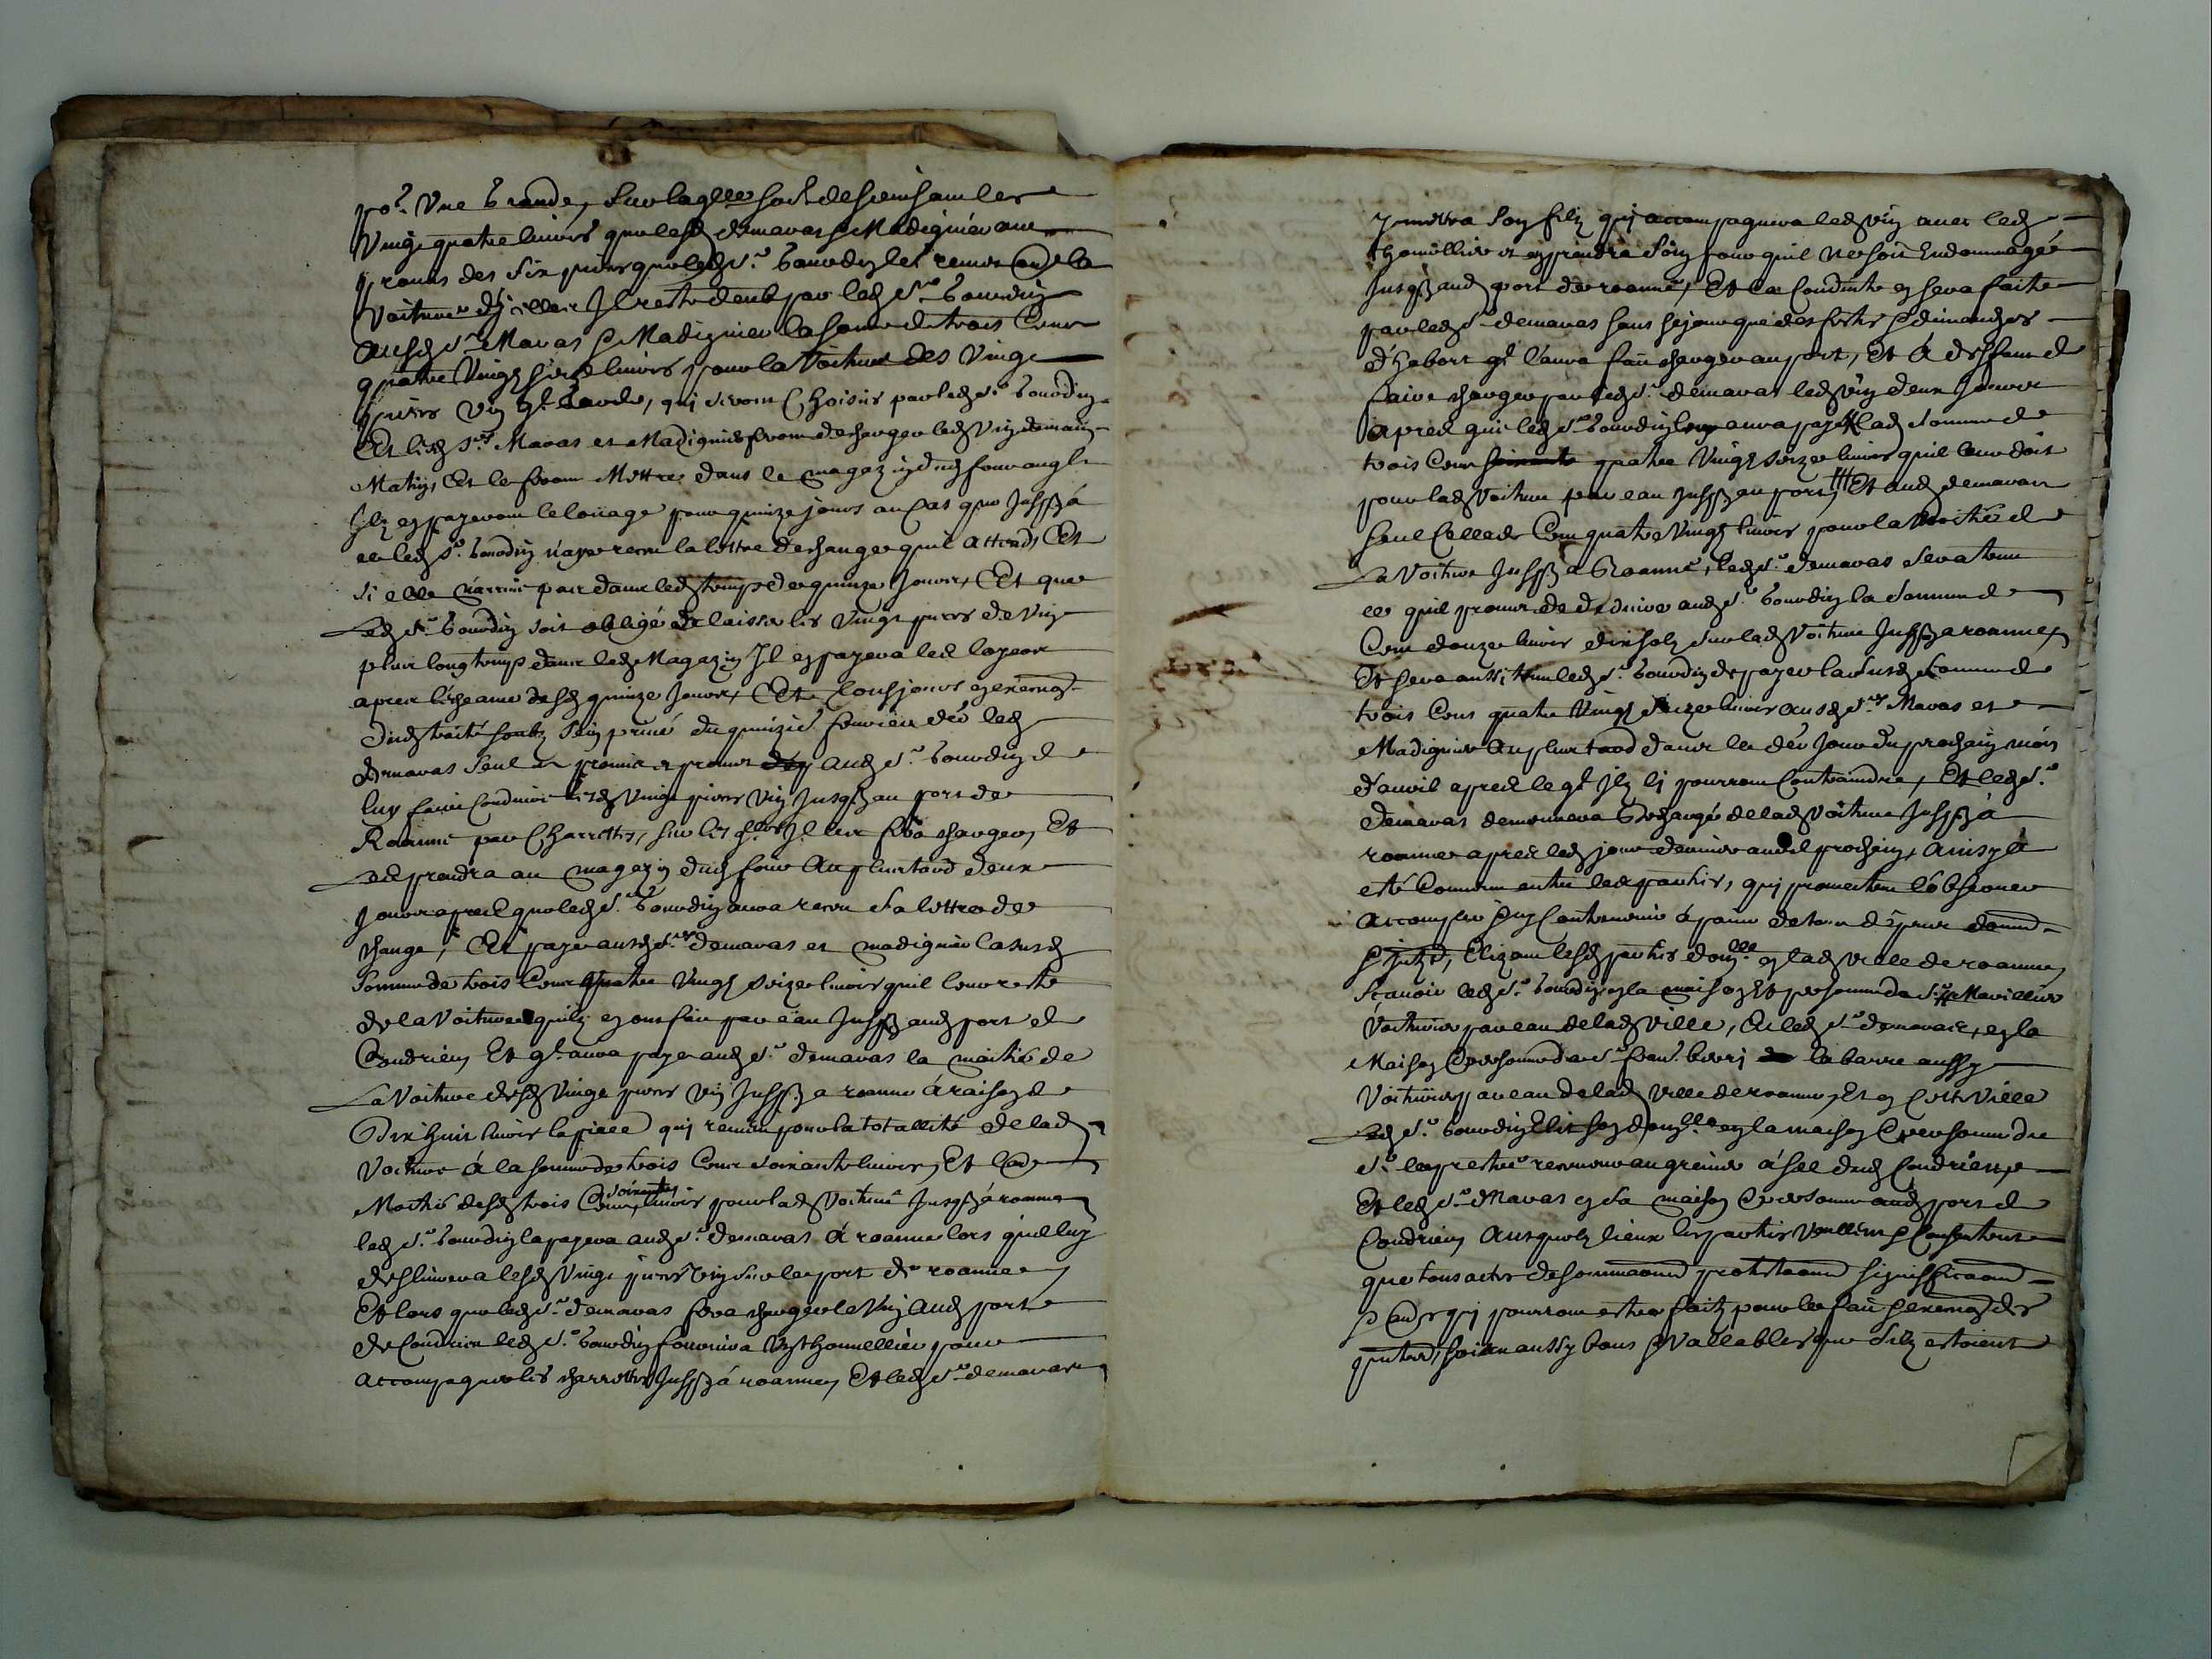 po.r Une brande, sur laqlle sode desdeus sommes
Vingt quatre livres que lesd demavas & Madignier ont
promis des six pieces que led s.r bourdin les remis en la
voiture d'icelles Il reste deub par led s.r bourdin
ausd s.rs Mavas & Madignier la somme de trois Cens
quatre Vingts seize livres pour la voiture des Vingt
pieces Vin qt. garde, qui seront Choisies par led s.r bourdin
Et lesd s.rs Mavas et Madignier feront descharger led vin demain
Matin, Et le feront Mettre dans le magazin dud
Ilz en payeront le loüage pour quinze jours au cas que Jusqz à
ce led s.r bourdin n'aye receu la lettre de change qu'il attend, Et
si elle n'arrive pas dans led temps de quinze Jours, Et que
Led s.r bourdin soit obligé de laisser les Vingt pieces de Vin
plus longtemps dans led Magazin Il en payera led loyeur
apres l'escheance desd quinze Jours, Et tousjours en
dud traité soubz sein privé du quinzie. feuvrier der. led
demavas seul a promis et promet aud s.r bourdin de
luy faire conduire lesd Vingt pieces Vin Jusqz au port de
Roanne par Charrettes, sur les qlles Il les fera charger, Et
Les prendra au magazin dud au plus tard deux
Jours apres que led s.r bourdin aura receu sa lettre de
change, Et paye ausd s.rs demavas et madignier la susd
Somme de trois Cens quatre Vingts seize livres qu'il leur reste
de la Voiture qu'ilz en ont fait par eau Jusqz aud port de
Condrieu, Et qt. aura payé aud s.r demavas la moitié de
La Voiture desd Vingt pieces Vin Jusqz a roanne à raison de
Dix huit livres la piece qui revient pour la totallité de lad
Voiture à la somme de trois Cens soixante livres, Et lad
Moitié desd trois Cens soixante livres pour lad Voiture Jusqz à roanne
led s.r bourdin la payera aud s.r demavas à roanne lors qu'il luy
deslivrera lesd Vingt pieces Vin sur le port de roanne
Et lors que led s.r demavas fera charger le Vin aud port
de Condrieu led s.r bourdin fournira Un thonnellier pour
accompagner les charrettes Jusqz à roanne, Et led s.r demavas
Y mettra son filz qui accompagnera led vin avec led
thonnellier et en prendra soin pour qu'il ne soit Endommagé
Jusqz aud port de roanne, Et la conduite en sera faite
par led s.r demavas sans sejour que des festes & dimanches
d'habort qt. l'aura fait charger au port, Et à deffaut de
faire charger par led s.r demavas led vin deux Jours
apres que led s.r bourdin luy aura payé lad somme de
trois Cens soixante quatre Vingts seize livres qu'il leur doit
pour lad voiture par eau Jusqz au port, Et aud demavas
seul Celle de Cent quatre Vingts livres pour la Moitié de
La Voiture Jusqz a Roanne, led s.r demavas sera tenu
ce qu'il promet de deduire aud s.r bourdin la somme de
Cent douze livres dix solz sur lad Voiture Jusqz a roanne,
Et sera aussi tenu led s.r bourdin de payer la susd somme de
trois Cens quatre Vingts seize livres ausd s.rs Mavas et
Madignier au plus tard dans le der. Jour du prochain mois
d'avril apres leqt. Ilz ly pourront Contraindre, Et led s.r
demavas demeurera deschargé de lad Voiture Jusqz à
roanne apres led jour dernier avril prochain, ainsy a
eté Convenu entre les parties, qui promettent l'observer
accomplir sans Contrevenir à peine de tous despens domma.
& intz, Elizant lesd parties domlle. en lad ville de roanne,
sçavoir led s.r bourdin en la maison et personne de s.r Mavillier
Voiturier par eau de lad ville, Et led s.r demavas, en la
Maison & personne de s.r fran. la barre aussy
Voiturier par eau de lad ville de roanne, Et en Cette Ville
Led s.r bourdin Elit son domlle en la maison & personne du
s.r receveur au grenier à sel dud Condrieu,
Et led s.r Mavas en sa maison & personne aud port de
Condrieu, Ausquels lieux les parties Veullent & Consentent
que tous actes de sommaons protestaons significaons
& qui pourront estre faitz pour le fait des
pntes, soient aussy bons & Vallables que s'ilz estoient